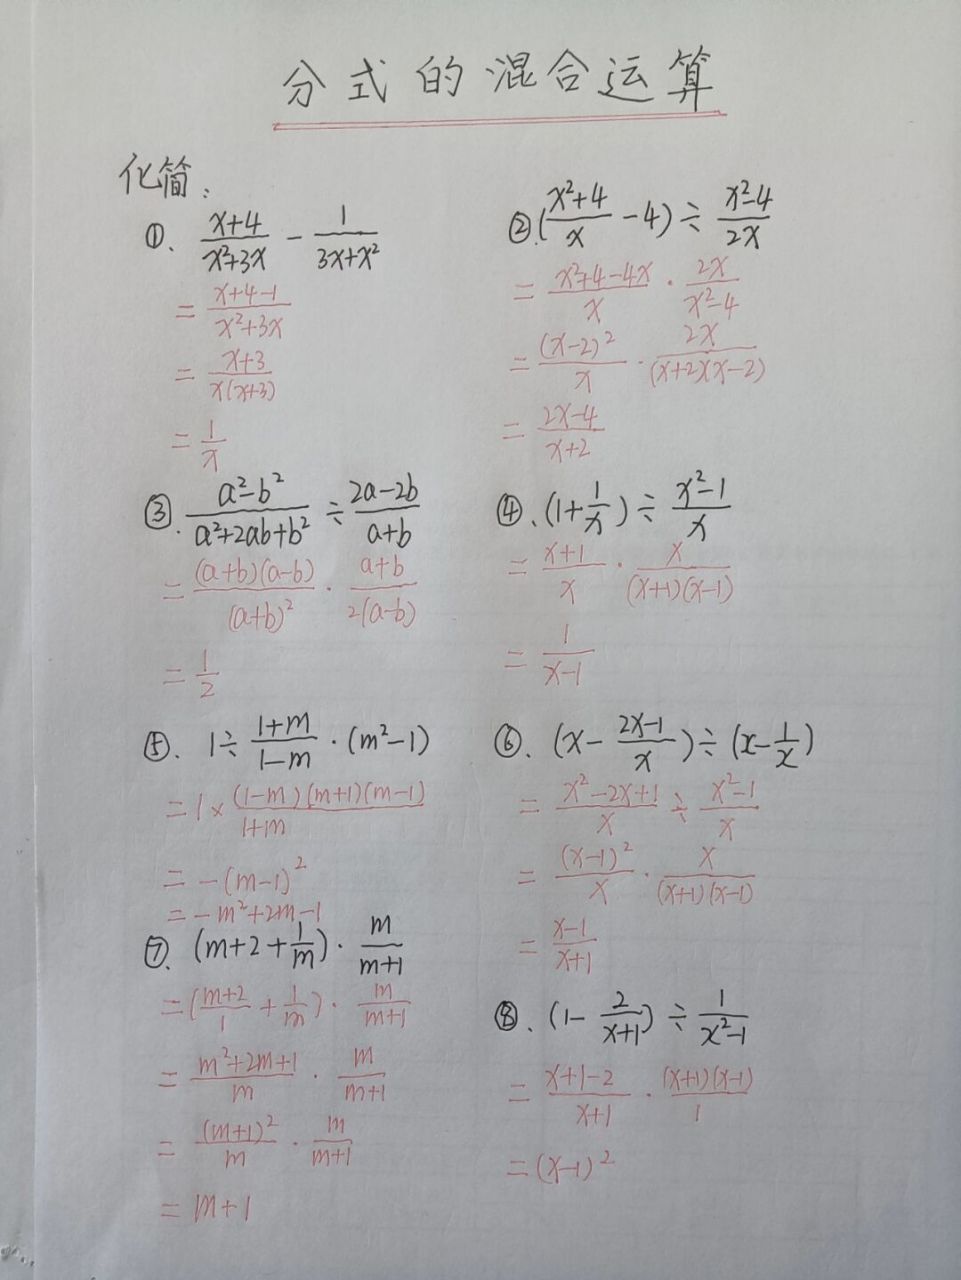 分式的混合运算
化简:
①. (x+4)/(x²+3x) - 1/(3x+x²)
= (x+4-1)/(x²+3x)
= (x+3)/(x(x+3))
= 1/x
②. ((x²+4)/x - 4) ÷ (x²-4)/(2x)
= (x²+4-4x)/x · 2x/(x²-4)
= (x-2)²/x · 2x/((x+2)(x-2))
= (2x-4)/(x+2)
③. (a²-b²)/(a²+2ab+b²) ÷ (2a-2b)/(a+b)
= (a+b)(a-b)/(a+b)² · (a+b)/(2(a-b))
= 1/2
④. (1+1/x) ÷ (x²-1)/x
= (x+1)/x · x/((x+1)(x-1))
= 1/(x-1)
⑤. 1÷ (1+m)/(1-m) · (m²-1)
= 1× (1-m)(m+1)(m-1)/(1+m)
= -(m-1)²
= -m²+2m-1
⑥. (x- (2x-1)/x) ÷ (x- 1/x)
= (x²-2x+1)/x ÷ (x²-1)/x
= (x-1)²/x · x/((x+1)(x-1))
= (x-1)/(x+1)
⑦. (m+2+1/m) · m/(m+1)
= ((m+2)/1 + 1/m) · m/(m+1)
= (m²+2m+1)/m · m/(m+1)
= (m+1)²/m · m/(m+1)
= m+1
⑧. (1- 2/(x+1)) ÷ 1/(x²-1)
= (x+1-2)/(x+1) · (x+1)(x-1)/1
= (x-1)²